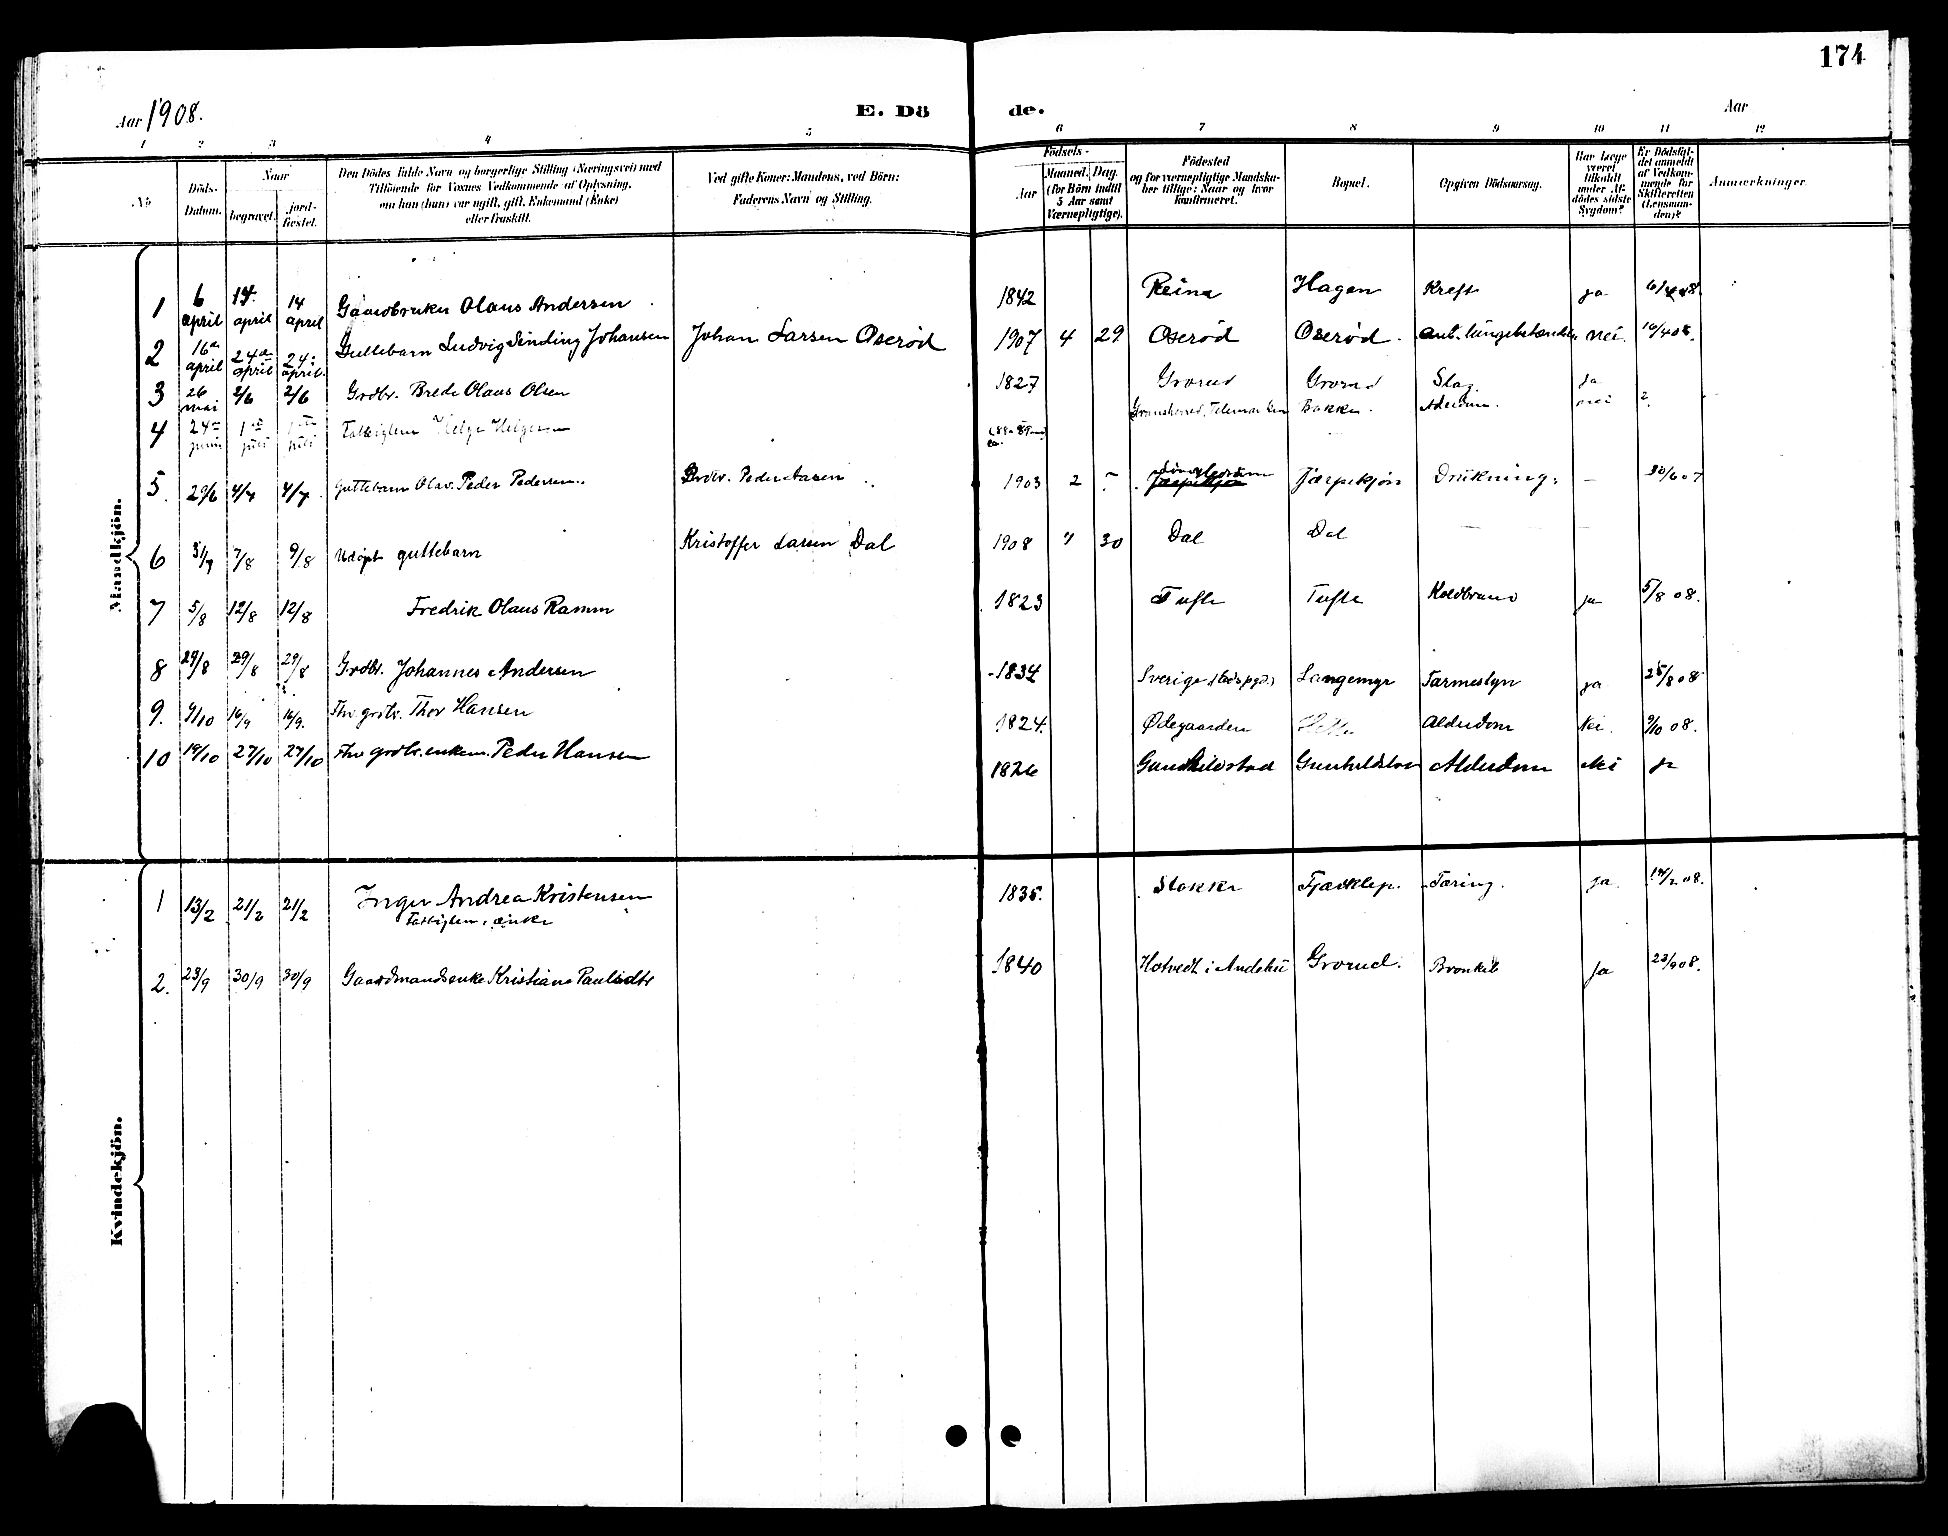 174
Aar 1908.
E. Dö de.
Aar
1 2 3 4 5 6 7 8 9 10 11 12
No
Döds-Datum.
Naar
begravet.
jord-fæstet.
Den Dödes fulde Navn og borgerlige Stilling (Næringsvei) med
Tilföiende for Voxnes Vedkommende af Oplysning,
om han (hun) var ugift, gift, Enkemand (Enke)
eller fraskilt.
Ved gifte Koner: Mandens, ved Börn:
Faderens Navn og Stilling.
Födsels-
Aar
Maaned. Dag.
(for Börn indtil
5 Aar samt
Værnepligtige).
Födested
og for værnepligtige Mandska-
ber tillige: Naar og hvor
konfirmeret.
Bopæl.
Opgiven Dödsaarsag.
Har Læge
været
tilkaldt
under Af-
dödes sidste
Sygdom?
Er Dödsfal-
det anmeldt
af Vedkom-
mende for
Skifteretten
(Lensman-
den)?
Anmærkninger.
Mandkjön.
1 6 april 14. april 14 april Gaardbruker Olaus Andersen 1842 Reine Hagen Kreft ja 6/4 08
2 16de april 24de april 24: april. Guttebarn Ludvig Sinding Johansen Johan Larsen Oserød 1907 4 29 Oserød Oserød. lungebetændelse nei. 16/4 08.
3 26 mai 2/6 2/6 Grdbr. Brede Olaus Olsen 1827 Grorud Grorud Slag. ja
4 24 juni 1 juli juli Fattiglem Helge Helgesen Telemarken Bakken. Alderdom. nei
5. 29/6 4/7 4/7 Guttebarn Olav Peder Pedersen Peder Larsen 1903 2 - Jærpekjøn Drukning. - 30/6 07
6 31/7 7/8 9/8 Udøpt guttebarn Kristoffer Larsen Dal 1908 7 30 Dal Dal
7 5/8 12/8 12/8 Fredrik Olaus Ramm 1823 Tufte Tufte Koldbrand ja 5/8 08.
8 29/8 29/8 Grdbr. Johannes Andersen 1834 Sverige Langemyr Tarmeslyn ja 25/8 08
9. 9/10 16/9 16/9. Fhv grdbr. Thor Hansen 1824. Ødegaarden Alderdom Nei. 9/10 08.
10 19/10 27/10 27/10 Fhv grdbr. enkem. Peder Hansen 1826 Gunhildstad Alderdom Nei ja
Kvindekjön.
1 13/2 21/2 21/2 Inger Andrea Kristensen 1835. Stokke Fjærklep. Tæring. ja 08.
Fattiglem, enke
2. 23/9 30/9 30/9 Gaardmandsenke Kristiane Paulsdtr 1840 Hotvedt i Andebu Grorud. Bronkit Ja 23/9 08.